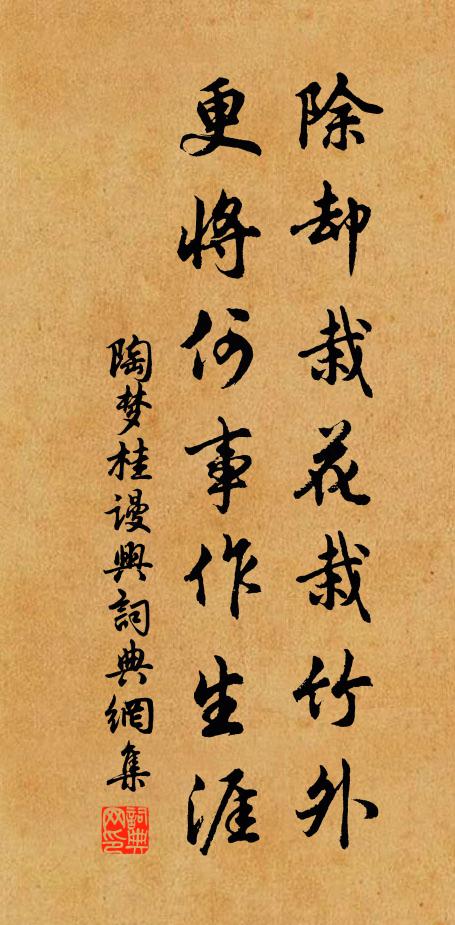 除却栽花栽竹外
更将何事作生涯
陶梦桂谩興詞典網集
詞典网印